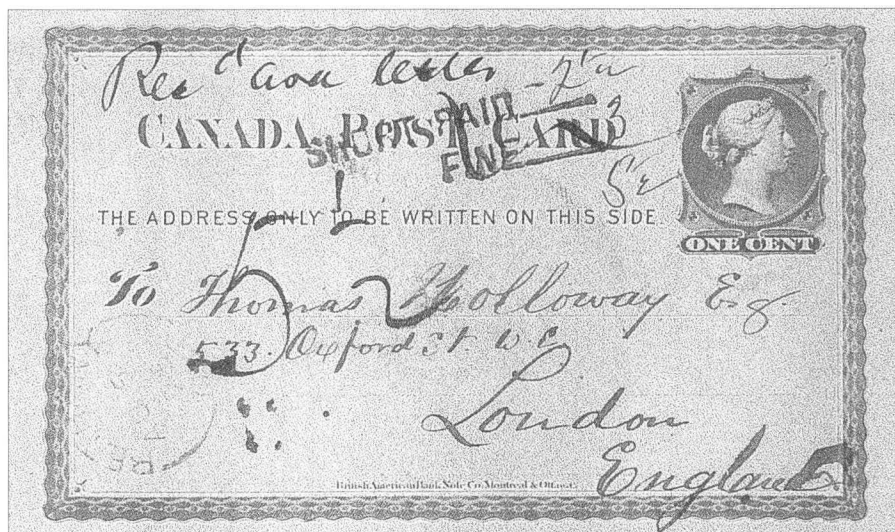 Rec'd as a letter
CANADA POST CARD
SHORT PAID
FINE
THE ADDRESS ONLY TO BE WRITTEN ON THIS SIDE.
ONE CENT
To Thomas Holloway Esq.
533. Oxford St. W.C.
London
England
British American Bank Note Co. Montreal & Ottawa.